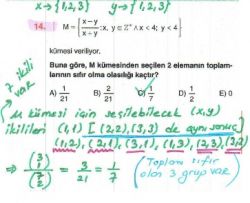 x→{1,2,3} y→{1,2,3}
14. M = {x−y / x+y : x, y ∈ Z⁺ ∧ x < 4; y < 4}
kümesi veriliyor.
Buna göre, M kümesinden seçilen 2 elemanın toplam-
larının sıfır olma olasılığı kaçtır?
A) 1/21 B) 2/21 C) 1/7 D) 1/2 E) 0
7 ikili var
M kümesi için seçilebilecek (x,y)
ikilileri (1,1) [(2,2),(3,3) de aynı sonuç]
(1,2), (2,1), (3,1), (1,3), (2,3) (3,2)
⇒ (3 1)/(7 2) = 3/21 = 1/7 (Toplamı sıfır
olan 3 grup var)